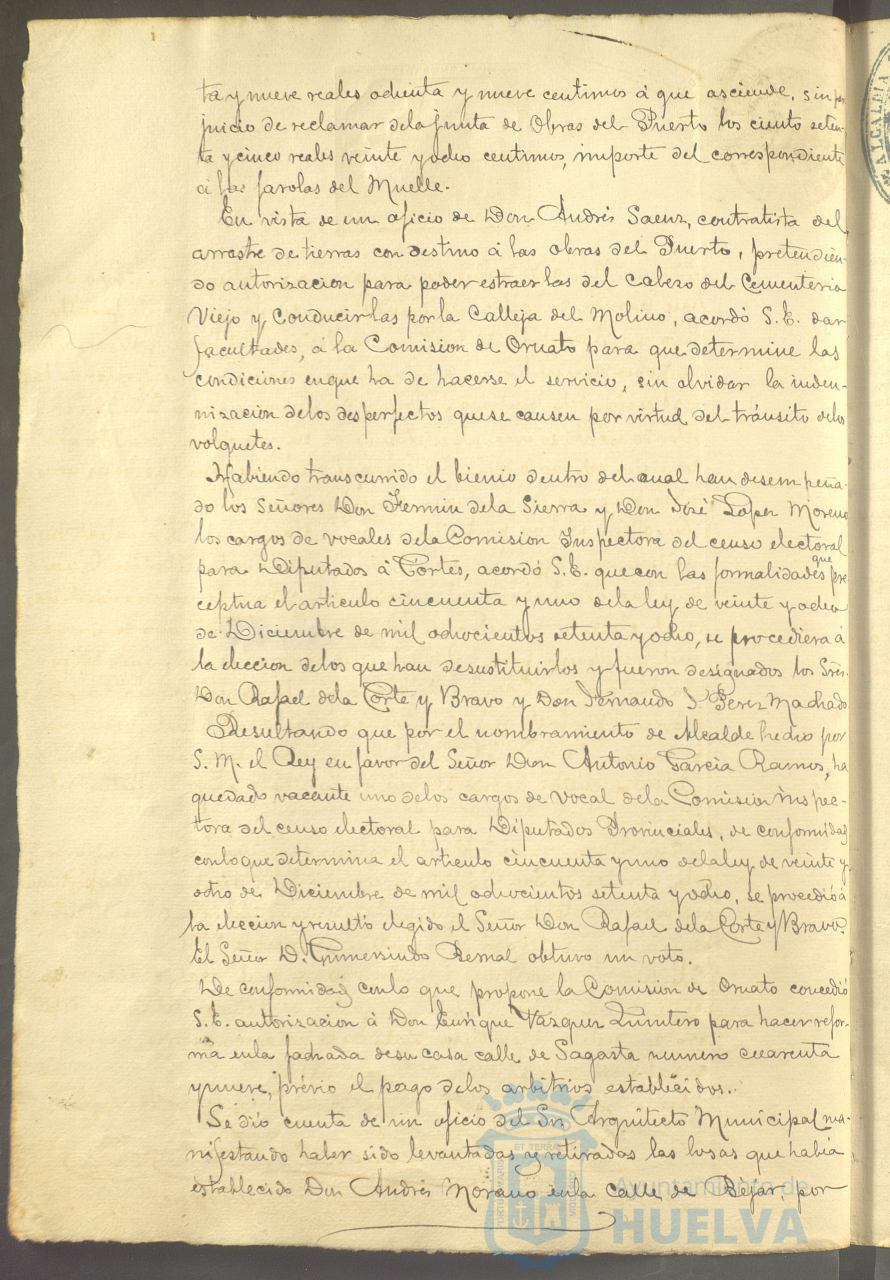 ta y nueve reales ochenta y nueve centimos á que asciende, sin per
juicio de reclamar dela junta de Obras del Puerto los ciento seten-
ta y cinco reales veinte y ocho centimos, importe del correspondiente
á las farolas del Muelle.
En vista de un oficio de Don Andrés Saenz, contratista del
arrastre de tierras con destino á las obras del Puerto, pretendien-
do autorizacion para poder estraerlas del Cabezo del Cementerio
Viejo y conducirlas por la Calleja del Molino, acordó S.E. dar
facultades, á la Comision de Ornato para que determine las
condiciones enque ha de hacerse el servicio, sin olvidar la indem-
nizacion delos desperfectos quese causen por virtud del tránsito delos
volquetes.
Habiendo transcurrido el bienio dentro del cual han desempeña-
do los Señores Don Fermin dela Sierra y Don José Lopez Moreno
los cargos de vocales dela Comision Inspectora del censo electoral
para Diputados á Córtes, acordó S.E. que con las formalidades que pre
ceptua el articulo cincuenta y uno dela ley de veinte y ocho
de Diciembre de mil ochocientos setenta y ocho, se procediera á
la eleccion delos que han desustituirlos y fueron designados los Sres.
Don Rafael dela Corte y Bravo y Don Fernando J. Perez Machado
Resultando que por el nombramiento de Alcalde hecho por
S. M. el Rey en favor del Señor Don Antonio Garcia Ramos, ha
quedado vacante uno delos cargos de vocal dela Comision inspec-
tora del censo electoral para Diputados Provinciales, de conformidad
conlo que determina el articulo cincuenta y uno dela ley de veinte y
ocho de Diciembre de mil ochocientos setenta y ocho, se procedió á
la eleccion y resultó elegido el Señor Don Rafael dela Corte y Bravo.
El Señor D. Gumersindo Bernal obtuvo un voto.
De conformidad conlo que propone la Comision de Ornato concedió
S.E. autorizacion á Don Enrique Vazquez Quintero para hacer refor-
ma enla fachada desu casa calle de Sagasta numero cuarenta
y nueve, prévio el pago delos arbitrios establecidos.
Se dió cuenta de un oficio del Sr. Arquitecto Municipal ma-
nifestando haber sido levantadas y retiradas las losas que habia
establecido Don Andrés Morano enla calle de Bejar, por
Ayuntamiento de
HUELVA
ALCALDIA